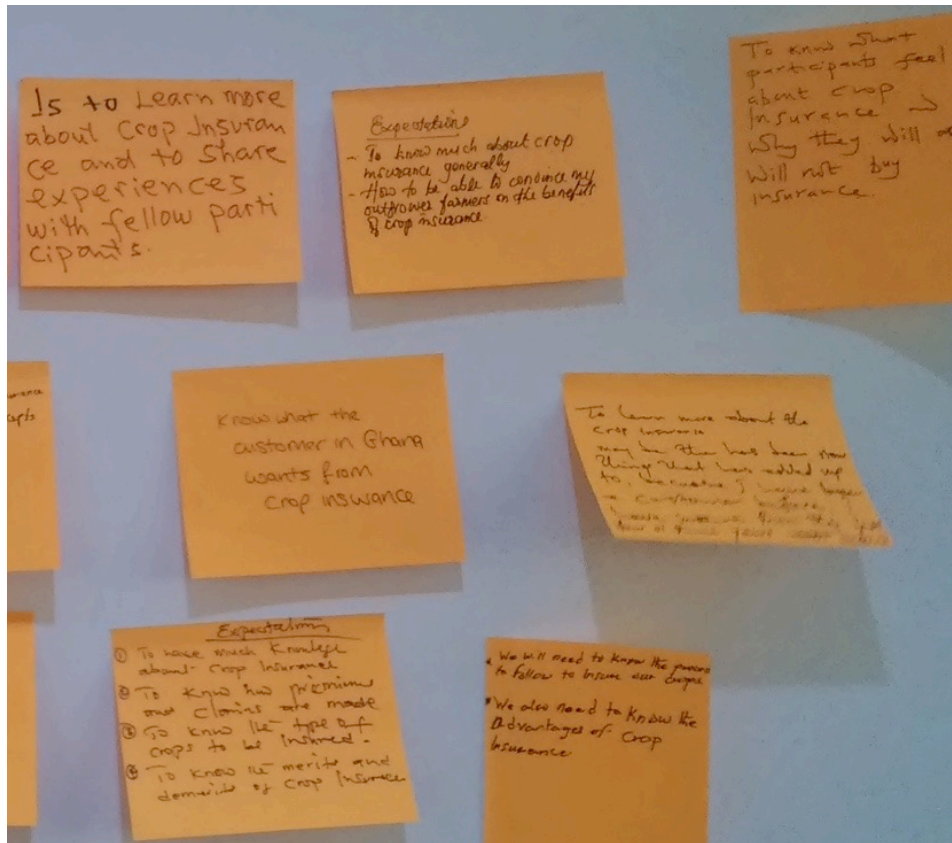 Is to Learn more
about Crop Insuran
ce and to share
experiences
with fellow parti
cipants.
Expectations
- To know much about crop
insurance generally
- How to be able to convince my
outgrower farmers on the benefits
of crop insurance.
To know what
participants feel
about crop
Insurance
why they will
will not buy
insurance.
Know what the
customer in Ghana
wants from
crop insurance
To learn more about the
crop insurance
may be the has been new
things that has added up
to, because I
a customer before
Expectations
① To have much Knowledge
about Crop Insurance
② To know how premium
and claims are made
③ To know the type of
crops to be insured.
④ To know the merits and
demerits of Crop Insurance
• We will need to know the process
to follow to insure our
• We also need to know the
Advantages of Crop
Insurance